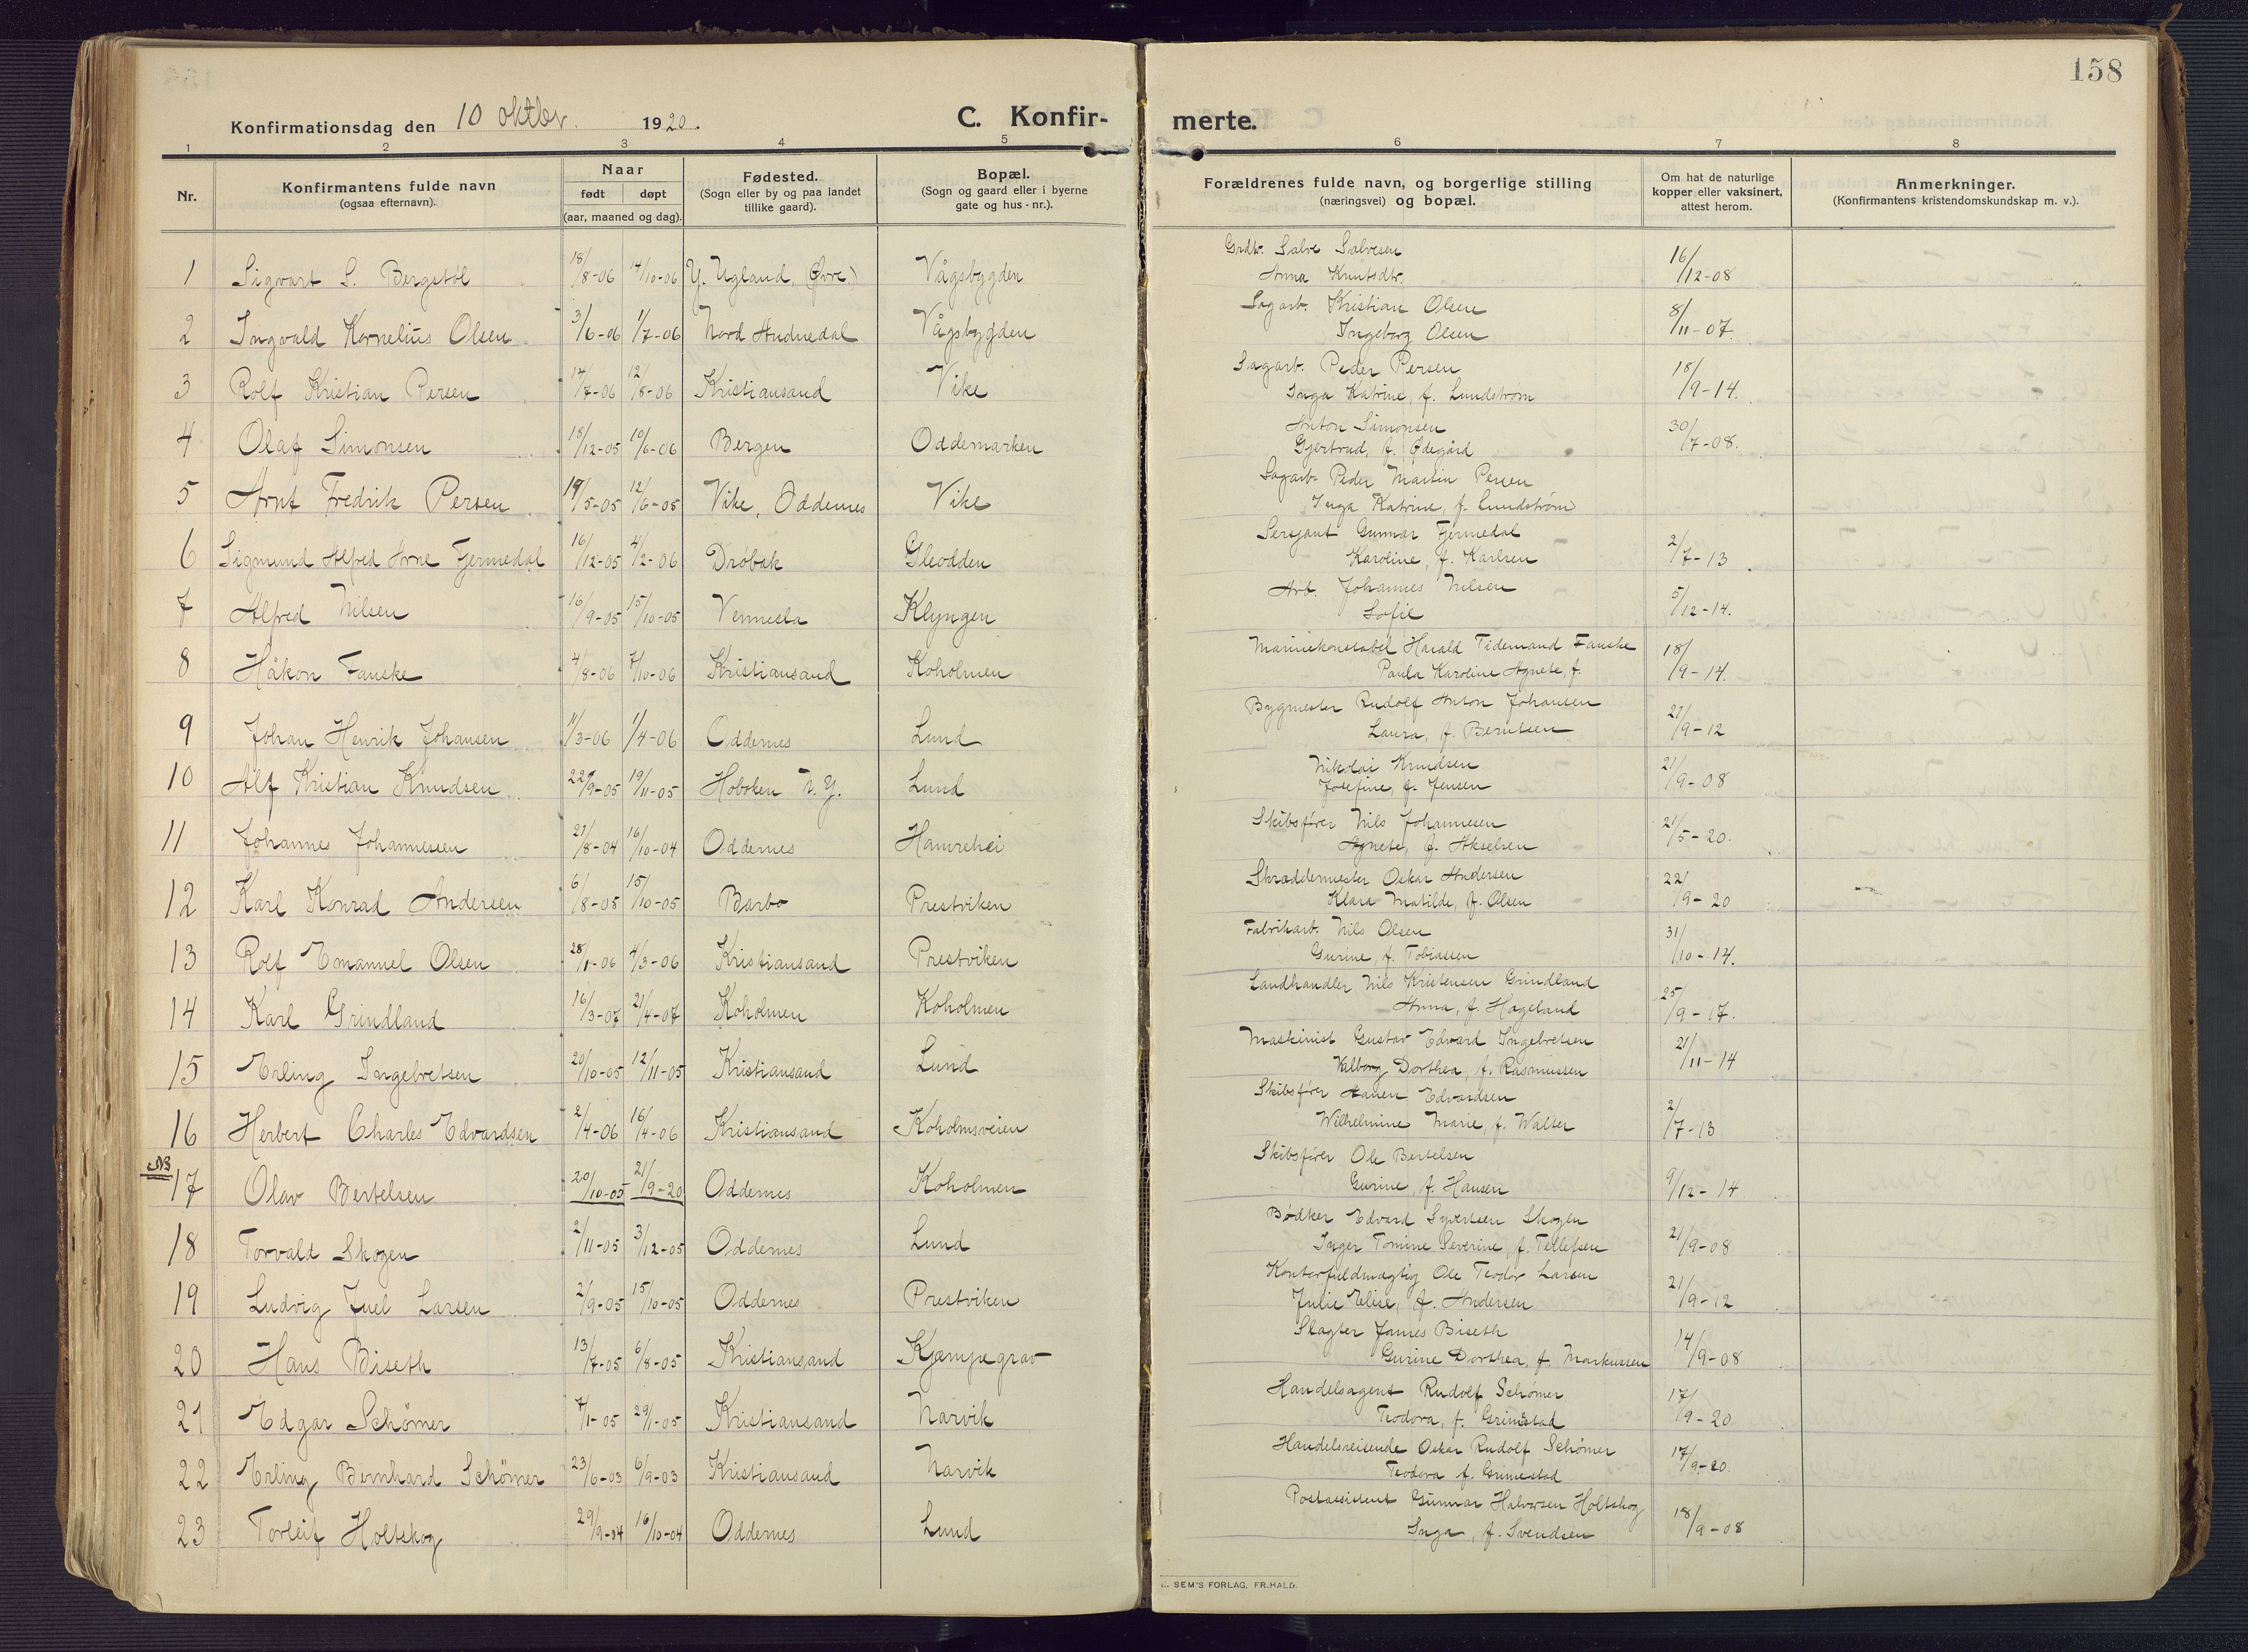 158
Konfirmationsdag den 10 oktbr. 1920.
C. Konfirmerte.
1 2 3 4 5 6 7 8
Nr.
Konfirmantens fulde navn
(ogsaa efternavn).
Naar
født døpt
(aar, maaned og dag).
Fødested.
(Sogn eller by og paa landet
tillike gaard).
Bopæl.
(Sogn og gaard eller i byerne
gate og hus - nr.).
Forældrenes fulde navn, og borgerlige stilling
(næringsvei) og bopæl.
Om hat de naturlige
kopper eller vaksinert,
attest herom.
Anmerkninger.
(Konfirmantens kristendomskundskap m. v.).
1 Sigvart S. Bergstøl 18/8-06 14/10-06 Y. Ugland, (Øvre.) Vågsbygden Grdbr. Salve Salvesen
Anna Knutsdtr. 16/12-08
2 Ingvald Kornelius Olsen 3/6-06 1/7-06 Nord Audnedal Vågsbygden Sagarb. Kristian Olsen
Ingeborg Olsen 8/11-07.
3 Rolf Kristian Persen 14/7-06 12/8-06 Kristiansand Vike Sagarb. Peder Persen
Inga Katrine, f. Lundstrøm 18/9-14.
4 Olaf Simonsen 18/12-05 10/6-06 Bergen Oddemarken Anton Simonsen
Gjertrud, f. Ødegård 30/7-08.
5 Arnt Fredrik Persen 19/5-05 12/6-05 Vike, Oddernes Vike Sagarb. Peder Martin Persen
Inga Katrine, f. Lundstrøm
6 Sigmund Alfred Arne Fjermedal 16/12-05 4/2-06 Drøbak Gleodden Sersjant Gunnar Fjermedal
Karoline, f. Karlsen 2/7-13
7 Alfred Nilsen 16/9-05 15/10-05 Vennesla Klyngen Arb. Johannes Nilsen
Sofie 5/12-14.
8 Håkon Fauske 4/8-06 7/10-06 Kristiansand Koholmen Harald Tidemand Fauske
Paula Karoline Agnete, f. 18/9-14.
9 Johan Henrik Johansen 11/3-06 1/4-06 Oddernes Lund Bygmester Rudolf Anton Johansen
Laura, f. Berntsen 21/9-12
10 Alf Kristian Knudsen 22/9-05 19/11-05 Hoboken N.Y. Lund Nikolai Knudsen
Josefine, f. Jensen 21/9-08
11 Johannes Johannessen 21/8-04 16/10-04 Oddernes Hamrehei Skibsfører Nils Johannesen
Agnete, f. Akselsen 21/5-20.
12 Karl Konrad Andersen 6/8-05 15/10-05 Barbo Prestviken Skræddermester Oskar Andersen
Klara Matilde, f. Olsen 22/9-20
13 Rolf Emanuel Olsen 28/1-06 4/3-06 Kristiansand Prestviken Fabrikarb. Nils Olsen
Gurine, f. Tobiassen 31/10-14.
14 Karl Grindland 16/3-07 21/4-07 Koholmen Koholmen Landhandler Nils Kristensen Grindland
Anna, f. Hageland 25/9-17.
15 Erling Ingebretsen 20/10-05 12/11-05 Kristiansand Lund Maskinist Gustav Edvard Ingebretsen
Valborg Dorthea, f. Rasmussen 21/11-14
16 Herbert Charles Edvardsen 2/4-06 16/4-06 Kristiansand Koholmsveien Skibsfører Edvardsen
Wilhelmine Marie, f. Walter 2/7-13
NB
17 Olav Bertelsen 20/10-05 21/9-20 Oddernes Koholmen Skibsfører Ole Bertelsen
Gurine, f. Hansen 9/12-14
18 Torvald Skogen 2/11-05 3/12-05 Oddernes Lund Bødker Edvard Syvertsen Skogen
Inger Tomine Severine, f. Tellefsen 21/9-08
19 Ludvig Juel Larsen 2/9-05 15/10-05 Oddernes Prestviken Kontorfuldmægtig Ole Teodor Larsen
Julie Elise, f. Andersen 21/9-12
20 Hans Biseth 13/7-05 6/8-05 Kristiansand Kjæmpegrav Slagter James Biseth
Gurine Dorthea, f. Markussen 14/9-08
21 Edgar Schömer 7/1-05 29/1-05 Kristiansand Narvik Handelsagent Rudolf Schömer
Teodora, f. Grimstad 17/9-20
22 Erling Bernhard Schömer 23/6-03 6/9-03 Kristiansand Narvik Handelsreisende Oskar Rudolf Schömer
Teodora f. Grimestad 17/9-20.
23 Torleif Holtskog 29/9-04 16/10-04 Oddernes Lund Postassistent Gunnar Halvorsen Holtskog
Inga, f. Svendsen 18/9-08
SEM'S FORLAG, FR.HALD.